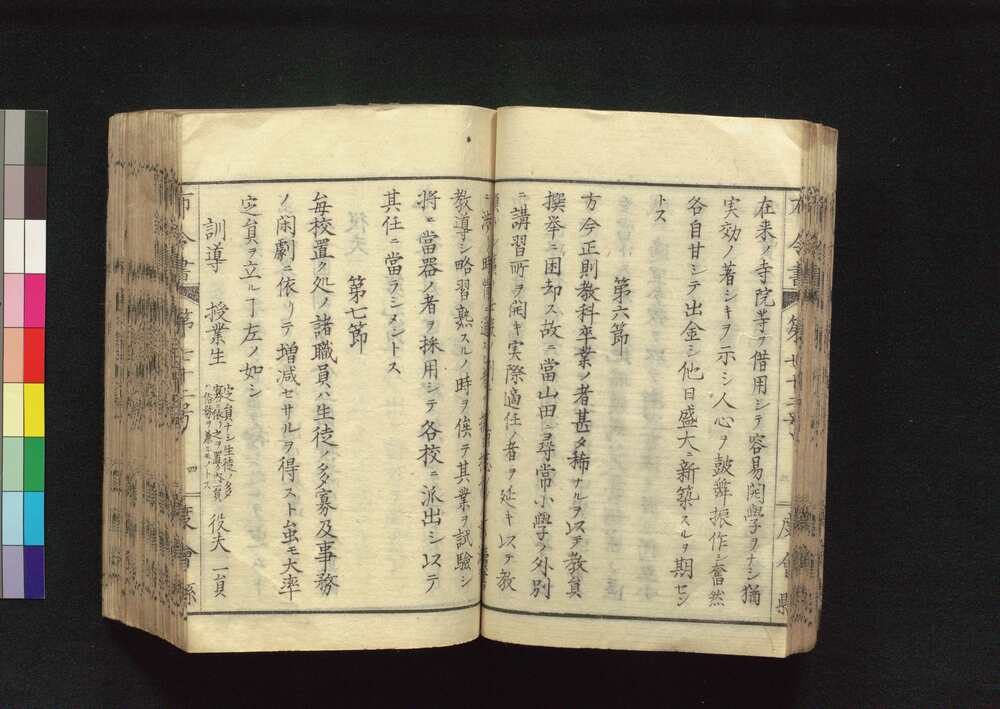 在来ノ寺院等ヲ借用シテ容易開學ヲナシ猶
実効ノ著シキヲ示シ人心ヲ鼓舞振作シ奮然
各自甘シテ出金シ他日盛大ニ新築スルヲ期セン
トス
第六節
方今正則教科卒業ノ者甚タ稀ナルヲ以テ教員
撰挙ニ困却ス故ニ當山田ニ尋常小學ノ外別
ニ講習所ヲ開キ実際適任ノ者ヲ延キ以テ教
教導シ略習熟スルノ時ヲ俟テ其業ヲ試驗シ
将ニ當器ノ者ヲ採用シテ各校ニ派出シ以テ
其任ニ當ラシメントス
第七節
毎校置ク処ノ諸職員ハ生徒ノ多寡及事務
ノ閑劇ニ依リテ増减セサルヲ得スト虽モ大率
定員ヲ立ル丁左ノ如シ
訓導 授業生 定員ナシ生徒ノ多 寡ニ依リ之ヲ置 役夫 一員
布令書 第七十二号 四 度會縣